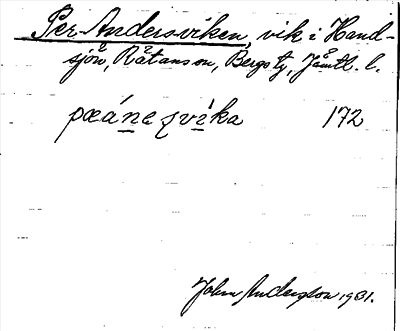 Per-Andersviken, vik i Hand-
sjön, Rätanson, Bergs tg, Jämtl. l.
pæánezvíka 172
John Andersson 1931.